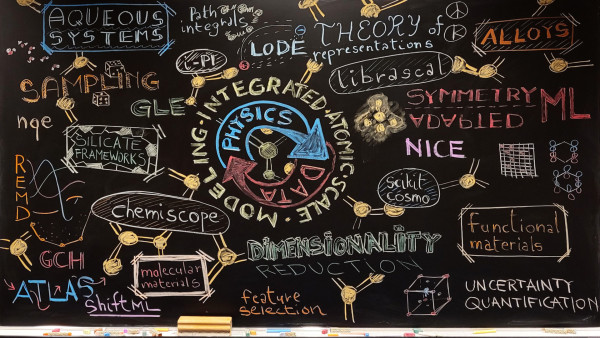 AQUEOUS
SYSTEMS
Path
integrals
LODE
THEORY of
representations
ALLOYS
i-PI
librascal
SAMPLING
GLE
nqe
SILICATE
FRAMEWORKS
MODELING·INTEGRATED·ATOMIC-SCALE·
PHYSICS
DATA
SYMMETRY
ADAPTED
ML
NICE
scikit
cosmo
REMD
chemiscope
GCH
ATLAS
shiftML
molecular
materials
DIMENSIONALITY
REDUCTION
feature
selection
functional
materials
UNCERTAINTY
QUANTIFICATION